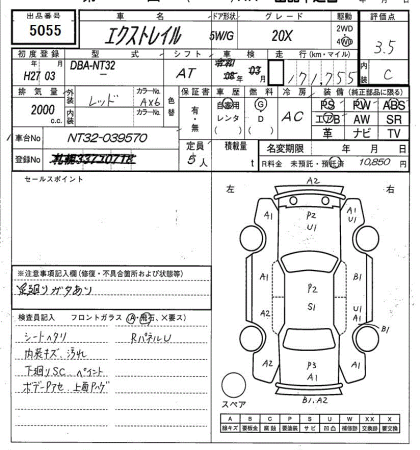 出品番号 車名 ドア形状 グレード 駆動 評価点
5055 エクストレイル 5W/G 20X 2WD 4WD 3.5
初度登録 型式 シフト 車検 走行(km・マイル) 内装
H27年 03月 DBA-NT32 AT 03月 171,755 C
排気量 外装 カラーNo. 色替 保証書 車歴 燃料 冷房 装備(純正部品に限る)
2000 c.c. レッド AX6 有・無 自家 レンタ ( ) G D ( ) AC PS PW ABS
内装 カラーNo. エアB AW SR
革 ナビ TV
車台No NT32-039570 定員 積載量 名変期限 年 月 日
登録No 5人 t R料金 未預託・預託済 10,850円
セールスポイント
左 右
A2
A1 P2 U1 A1 U1
A1 P2 S1 A1 B1
A2 A1
P3 A1
B1.A2
スペア
※注意事項記入欄(修復・不具合箇所および状態等)
足廻りガタあり
検査員記入 フロントガラス (A・飛石、×要ス)
シートヘタリ RパネルU
内装キズ、汚れ
下廻りSC ペイント
A B C P S U W X XX
線キズ 要板金 腐蝕 要塗装 サビ 凹凸 補修跡 交換跡 要交換